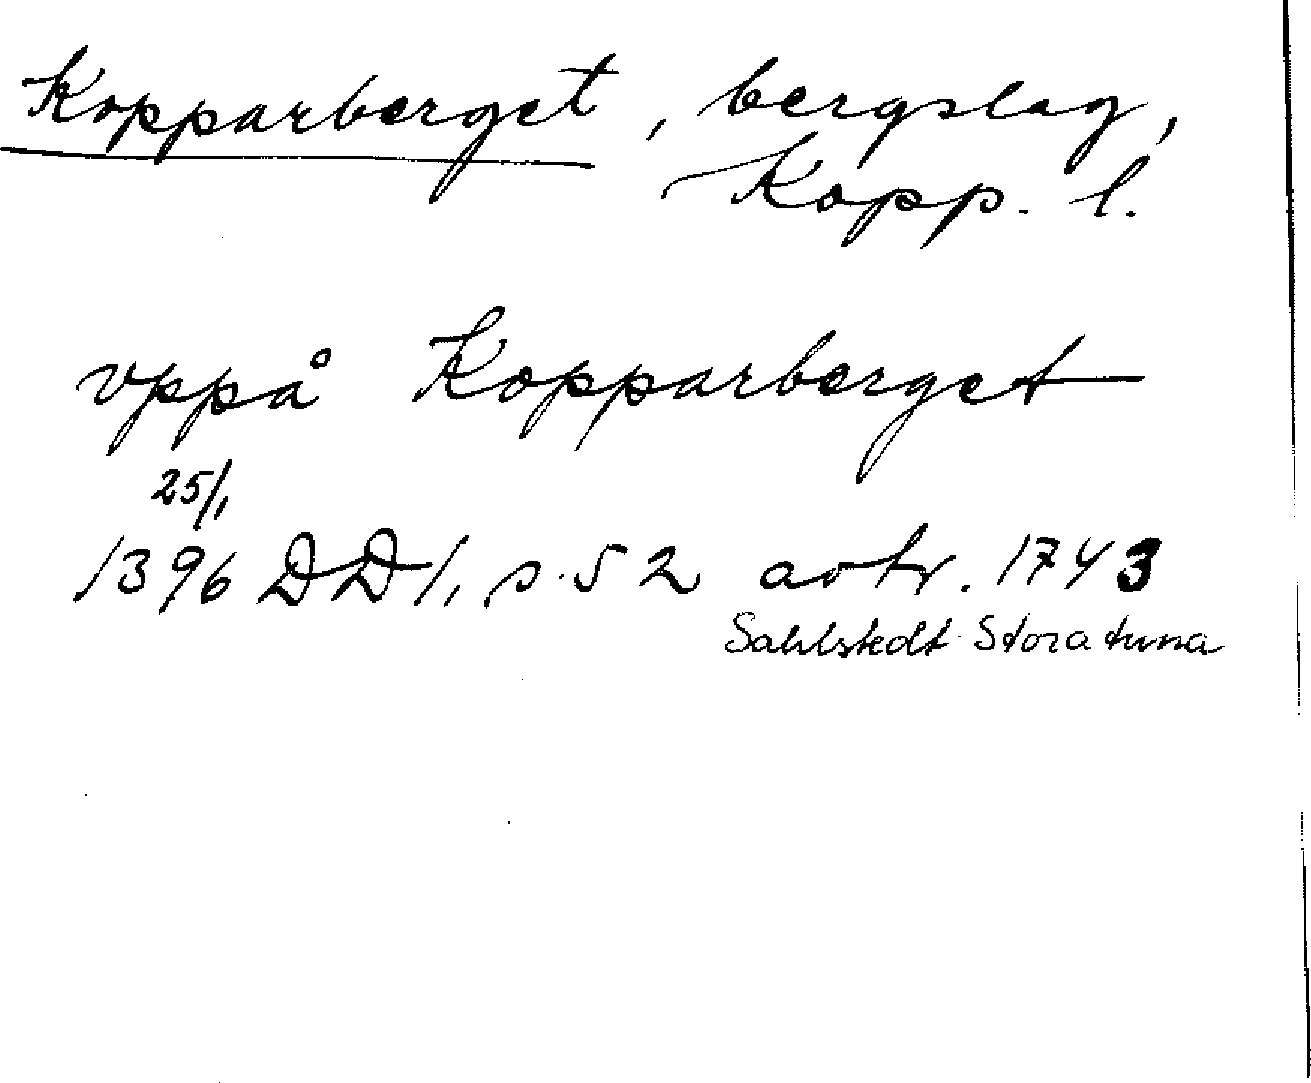 Kopparberget, bergslag,
Kopp. l.
vppå Kopparberget
25/1
1396 DD 1, s. 52 avtr. 1743
Sahlstedt Stora tuna